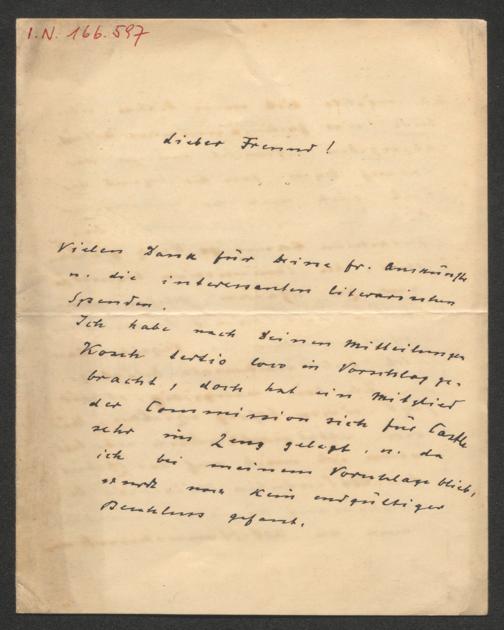 I.N. 166.597
Lieber Freund!
Vielen Dank für Deine fr. Auskünfte
u. die interessanten literarischen
Spenden.
Ich habe nach Deinen Mitteilungen
Kosch tertio loco in Vorschlag ge-
bracht, doch hat ein Mitglied
der Commission sich für Castle
sehr ins Zeug gelegt, u. da
ich bei meinem Vorschlage blieb,
wurde noch kein endgültiger
Beschluss gefasst.